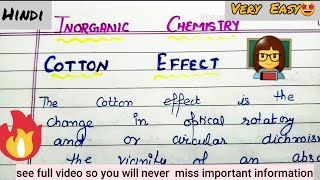 Hindi
Very Easy
INORGANIC CHEMISTRY
COTTON EFFECT
The Cotton effect is the
change in optical rotatory
and or circular dichrois
the vicinity of an abs
see full video so you will never miss important information